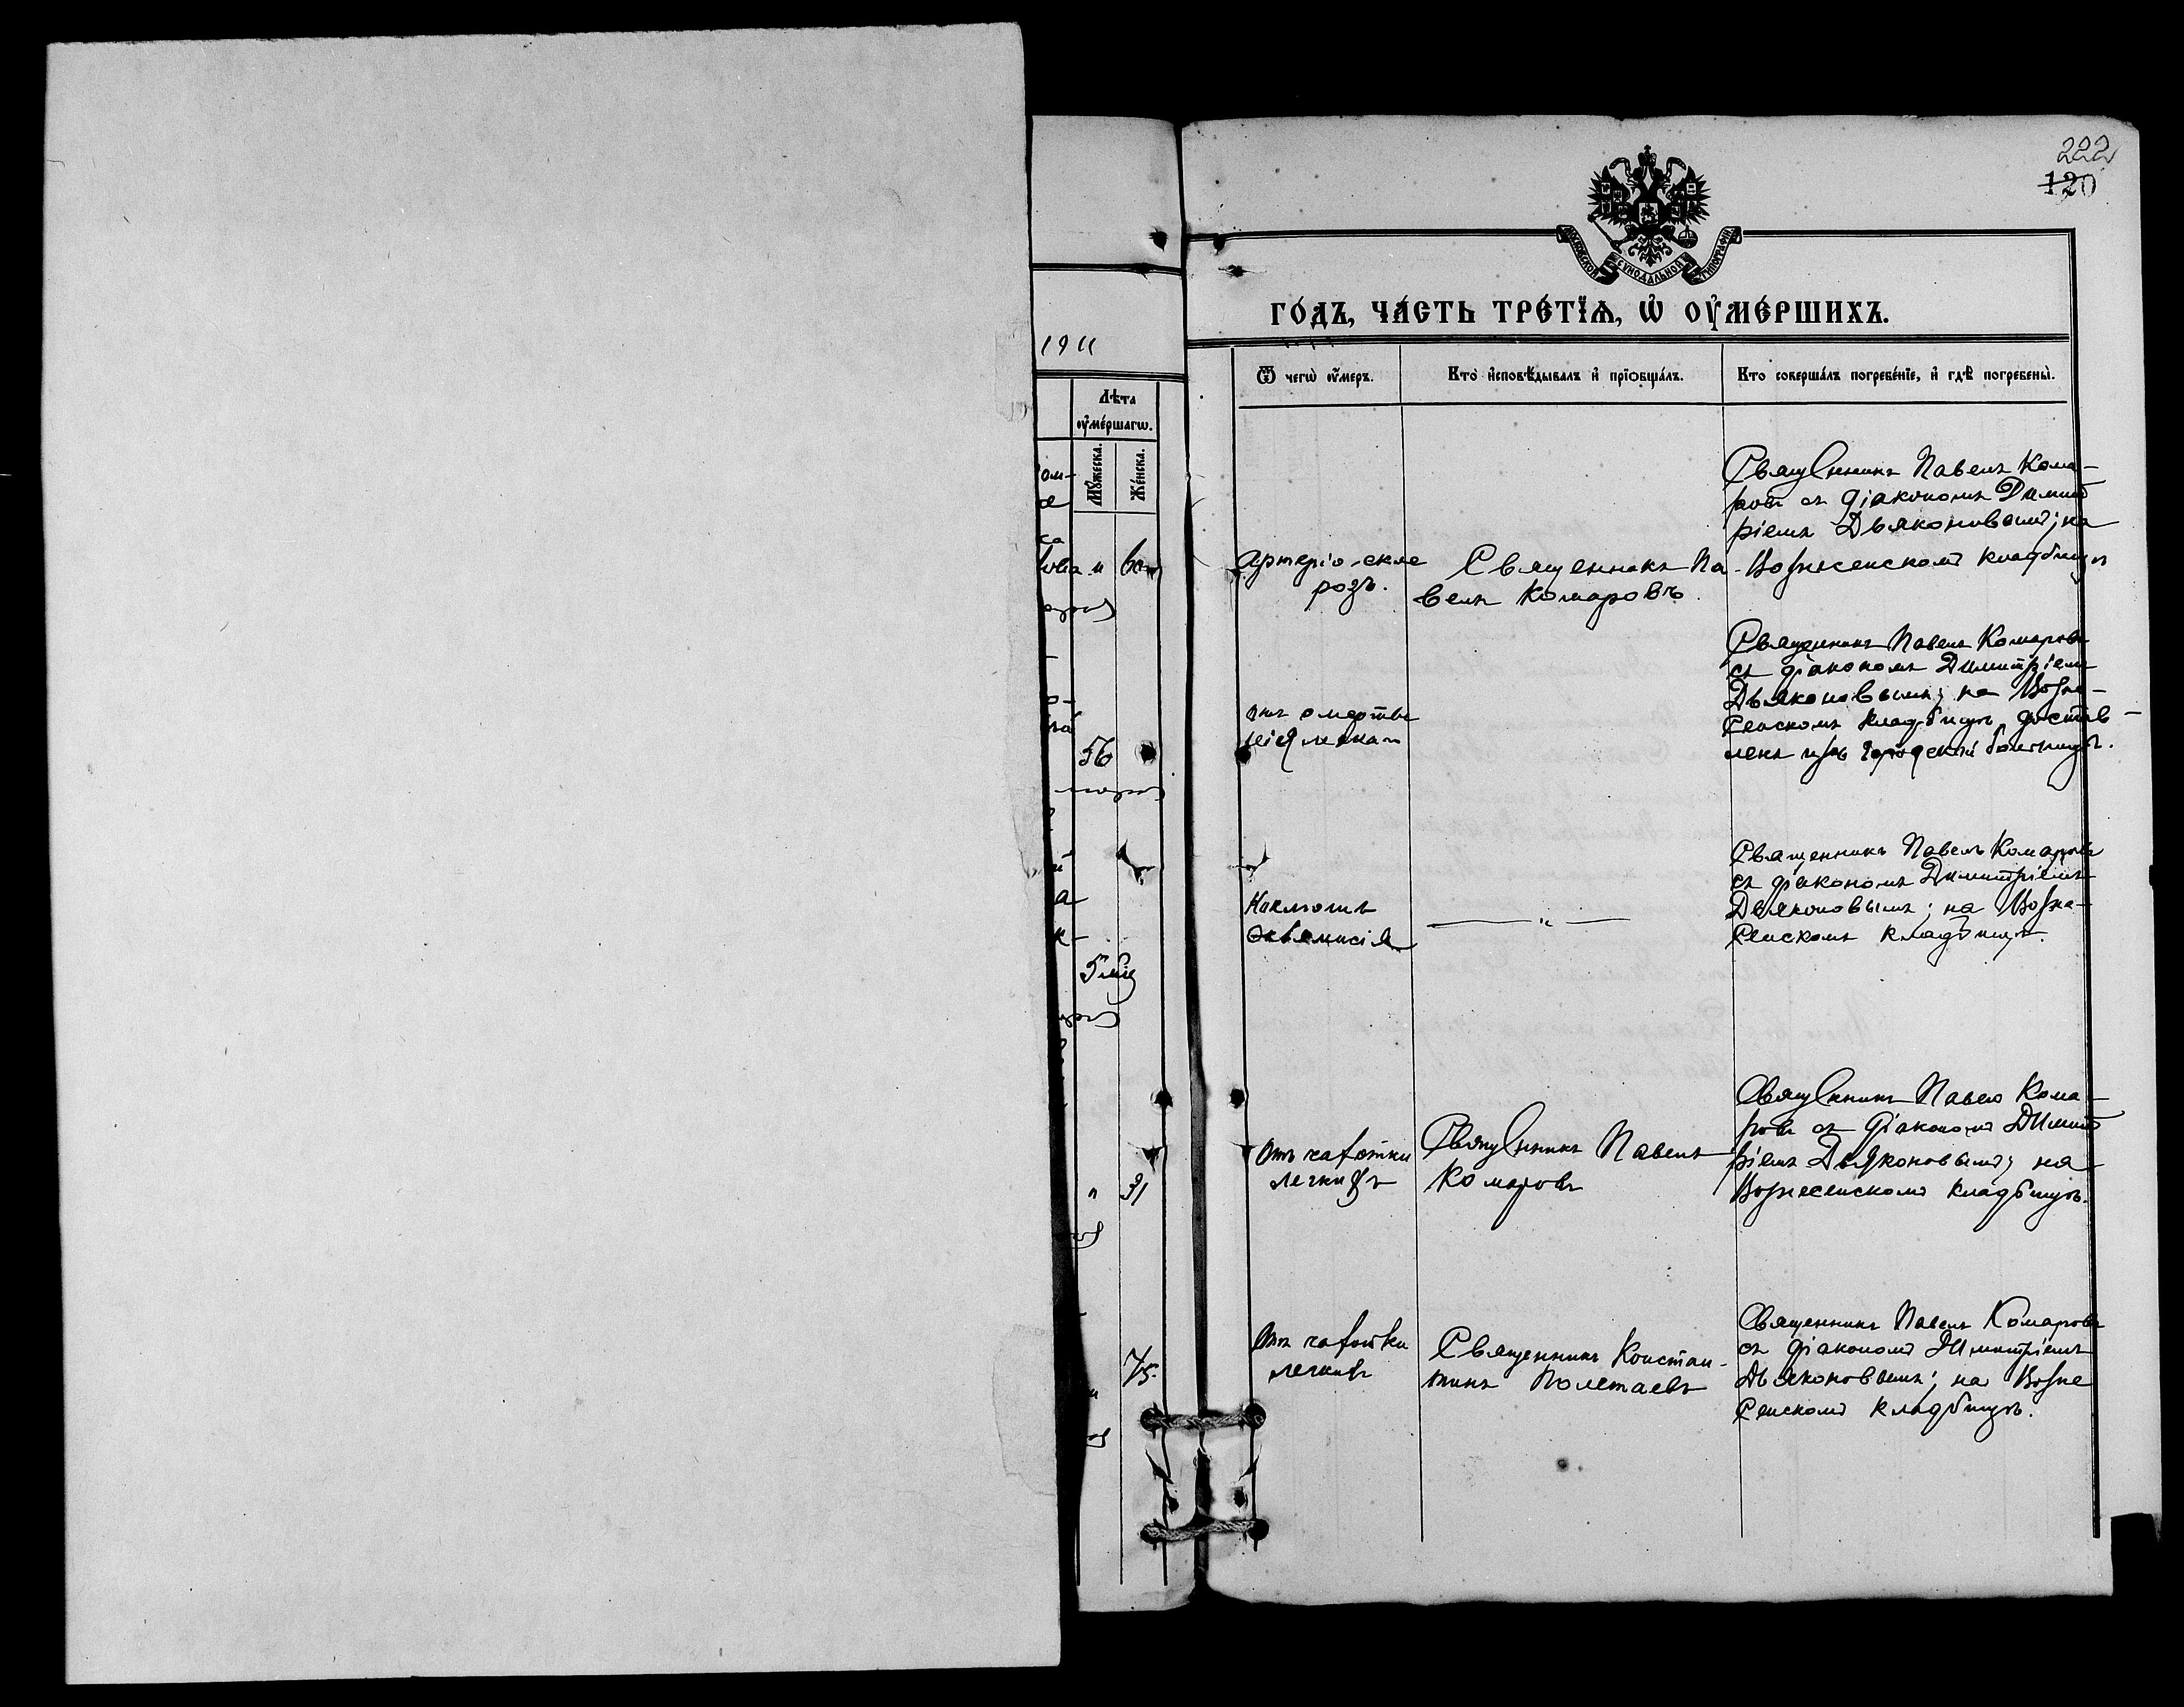 222
120
МОСКОВСКОЙ СѴНОДАЛЬНОЙ ТИПОГРАФІИ
ГО́ДЪ, ЧА́СТЬ ТРЕ́ТЇѦ, Ѡ҆ ОУ҆МЕ́РШИХЪ.
1911
Лѣта
ᲂу҆ме́ршагѡ.
Мꙋ́жеска.
Же́нска.
Ѿ чегѡ̀ ᲂу҆́меръ.
Кто̀ и҆сповѣ́дывалъ и҆ прїѡбща́лъ.
Кто соверша́лъ погребе́нїе, и҆ гдѣ̀ погребены̀.
60
Артеріо-скле
розъ.
Священникъ Па-
велъ Комаровъ.
Священникъ Павелъ Кома-
ровъ съ діакономъ Димит
ріемъ Дьяконовымъ; на
Вознесенскомъ кладбищѣ
56
Священникъ Павелъ Комаровъ
съ діакономъ Димитріемъ
Дьяконовымъ; на Возне-
сенскомъ кладбищѣ, достав-
ленъ изъ городской больницы.
5 мѣс
Коклюшъ
Эклампсія
— " —
Священникъ Павелъ Комаровъ
съ діакономъ Димитріемъ
Дьяконовымъ; на Возне-
сенскомъ кладбищѣ.
" 31
Отъ чахотки
легкихъ
Священникъ Павелъ
Комаровъ
Священникъ Павелъ Кома-
ровъ съ діакономъ Димит
ріемъ Дьяконовымъ; на
Вознесенскомъ кладбищѣ.
" 75.
Отъ чахотки
легкихъ
Священникъ Констан-
тинъ Полетаевъ
Священникъ Павелъ Комаровъ
съ діакономъ Димитріемъ
Дьяконовымъ; на Возне
сенскомъ кладбищѣ.